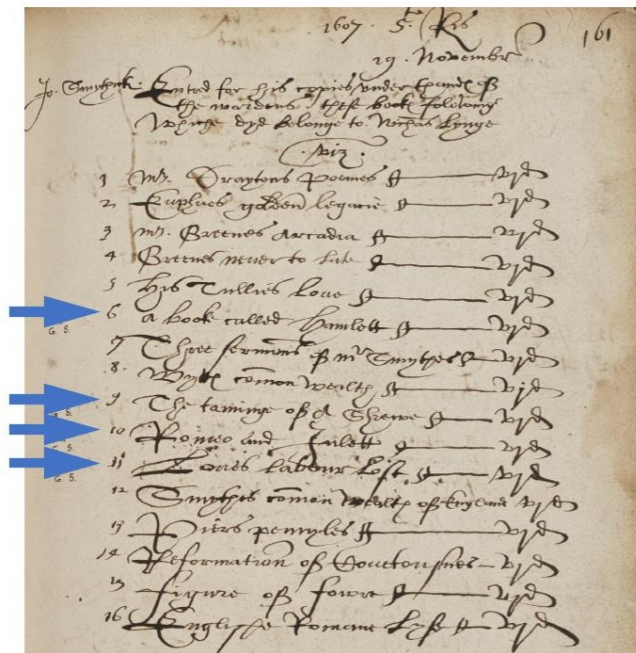 1607. 5. Rs 161
19 Novembr
Jo. Smythick. Entred for his copies vnder thandes of
the wardens. these bookes folowing
Whiche dyd belonge to Nicholas Lynge
. viz .
1 mr. Draytons Poemes vjd
2 Euphues golden legacie vjd
3 mr. Greenes Arcadia vjd
4 Greenes never to late vjd
5 his Tullies Loue vjd
6 a book called Hamlett vjd
G. S.
7 Three sermons of mr Smythes vjd
8. Wyttes comon wealth vjd
9 The taminge of A Shrewe vjd
G. S.
10 Romeo and Julett vjd
G. S.
11 Loues Labour Lost. vjd
G. S.
12 Smythes comon Wealth of England vjd
13 Piers pennyles vjd
14 Reformation of Couetousnes vjd
15 Figure of fowre vjd
16 Englishe Romane Lyfe vjd